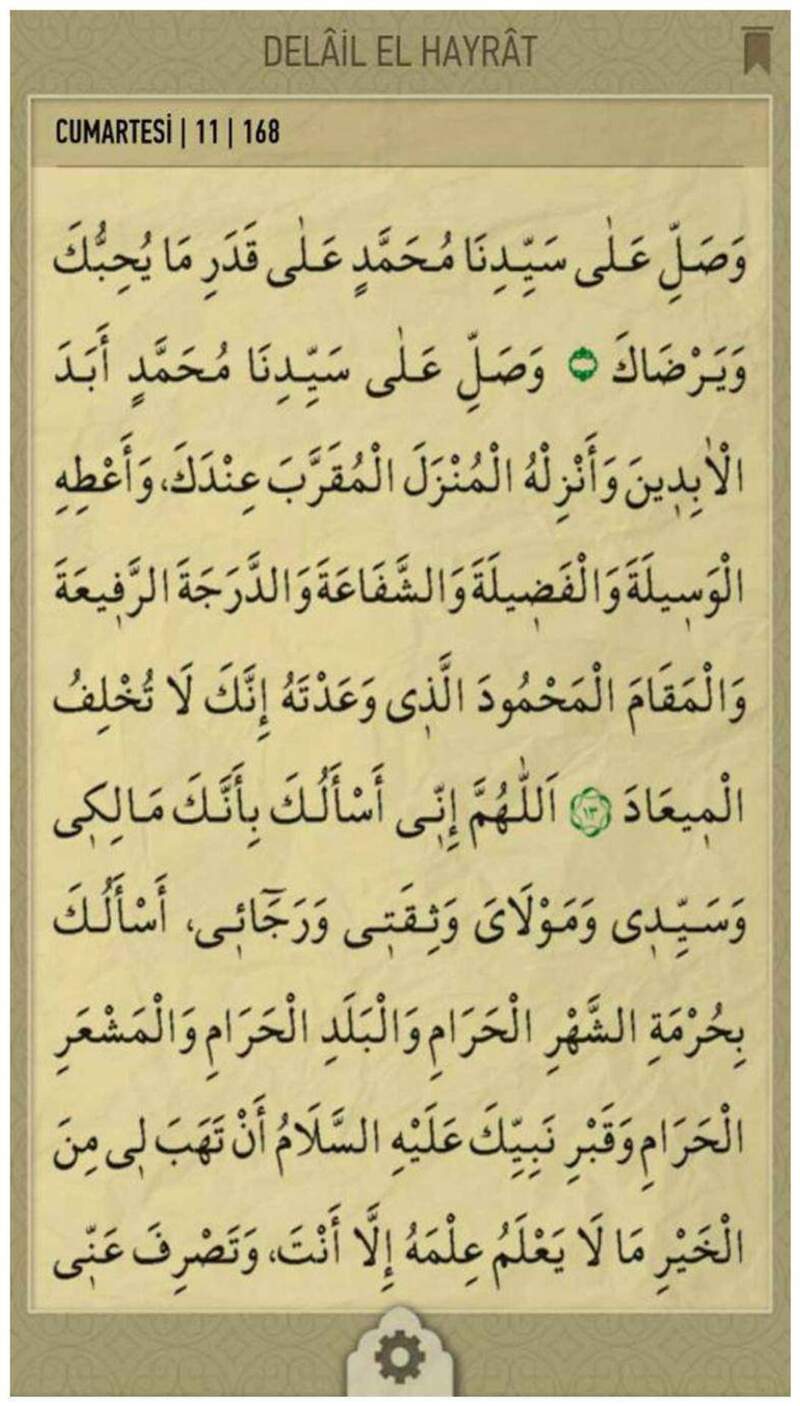 DELÂİL EL HAYRÂT
CUMARTESİ | 11 | 168
وَصَلِّ عَلٰى سَيِّدِنَا مُحَمَّدٍ عَلٰى قَدَرِ مَا يُحِبُّكَ
وَيَرْضَاكَ وَصَلِّ عَلٰى سَيِّدِنَا مُحَمَّدٍ أَبَدَ
الْاٰبِدِينَ وَأَنْزِلْهُ الْمُنْزَلَ الْمُقَرَّبَ عِنْدَكَ، وَأَعْطِهِ
الْوَسِيلَةَ وَالْفَضِيلَةَ وَالشَّفَاعَةَ وَالدَّرَجَةَ الرَّفِيعَةَ
وَالْمَقَامَ الْمَحْمُودَ الَّذِى وَعَدْتَهُ إِنَّكَ لَا تُخْلِفُ
الْمِيعَادَ ١٣ اَللّٰهُمَّ إِنِّى أَسْأَلُكَ بِأَنَّكَ مَالِكِى
وَسَيِّدِى وَمَوْلَاىَ وَثِقَتِى وَرَجَٓائِى، أَسْأَلُكَ
بِحُرْمَةِ الشَّهْرِ الْحَرَامِ وَالْبَلَدِ الْحَرَامِ وَالْمَشْعَرِ
الْحَرَامِ وَقَبْرِ نَبِيِّكَ عَلَيْهِ السَّلَامُ أَنْ تَهَبَ لِى مِنَ
الْخَيْرِ مَا لَا يَعْلَمُ عِلْمَهُ إِلَّا أَنْتَ، وَتَصْرِفَ عَنِّى